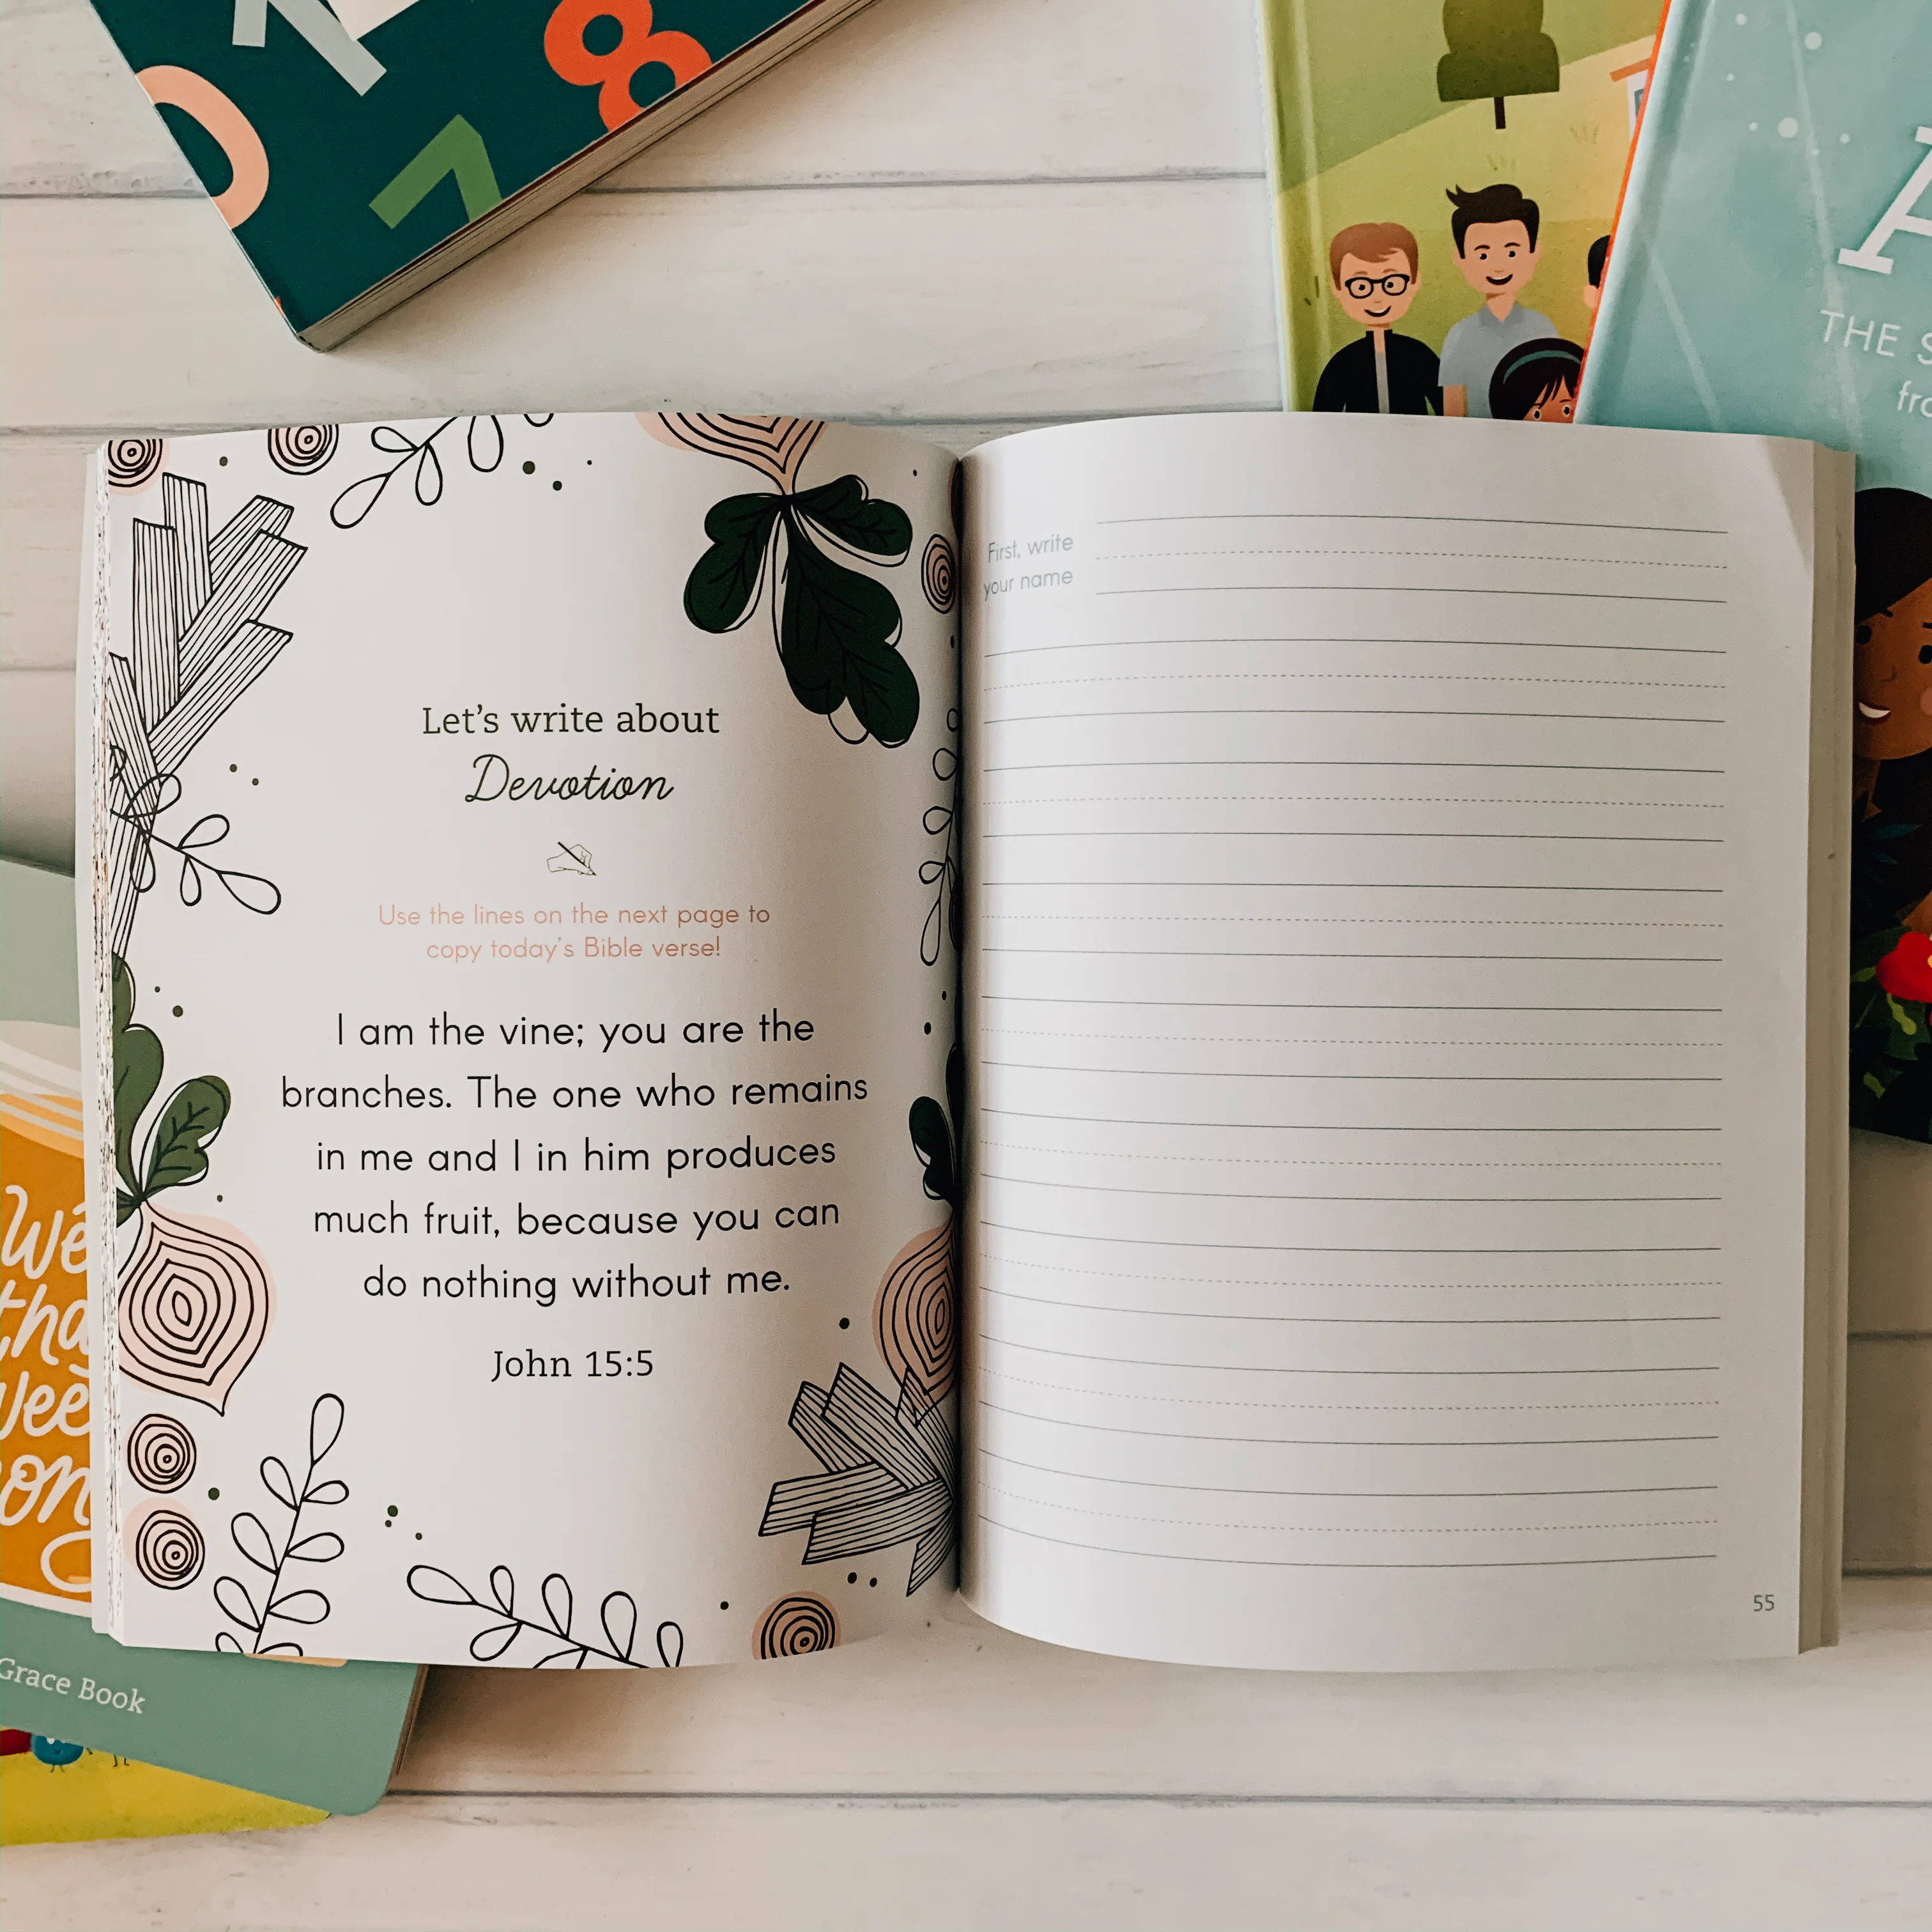 0 1 8
7
A
THE
Let's write about
Devotion
Use the lines on the next page to
copy today's Bible verse!
I am the vine; you are the
branches. The one who remains
in me and I in him produces
much fruit, because you can
do nothing without me.
John 15:5
First, write
your name
55
Grace Book